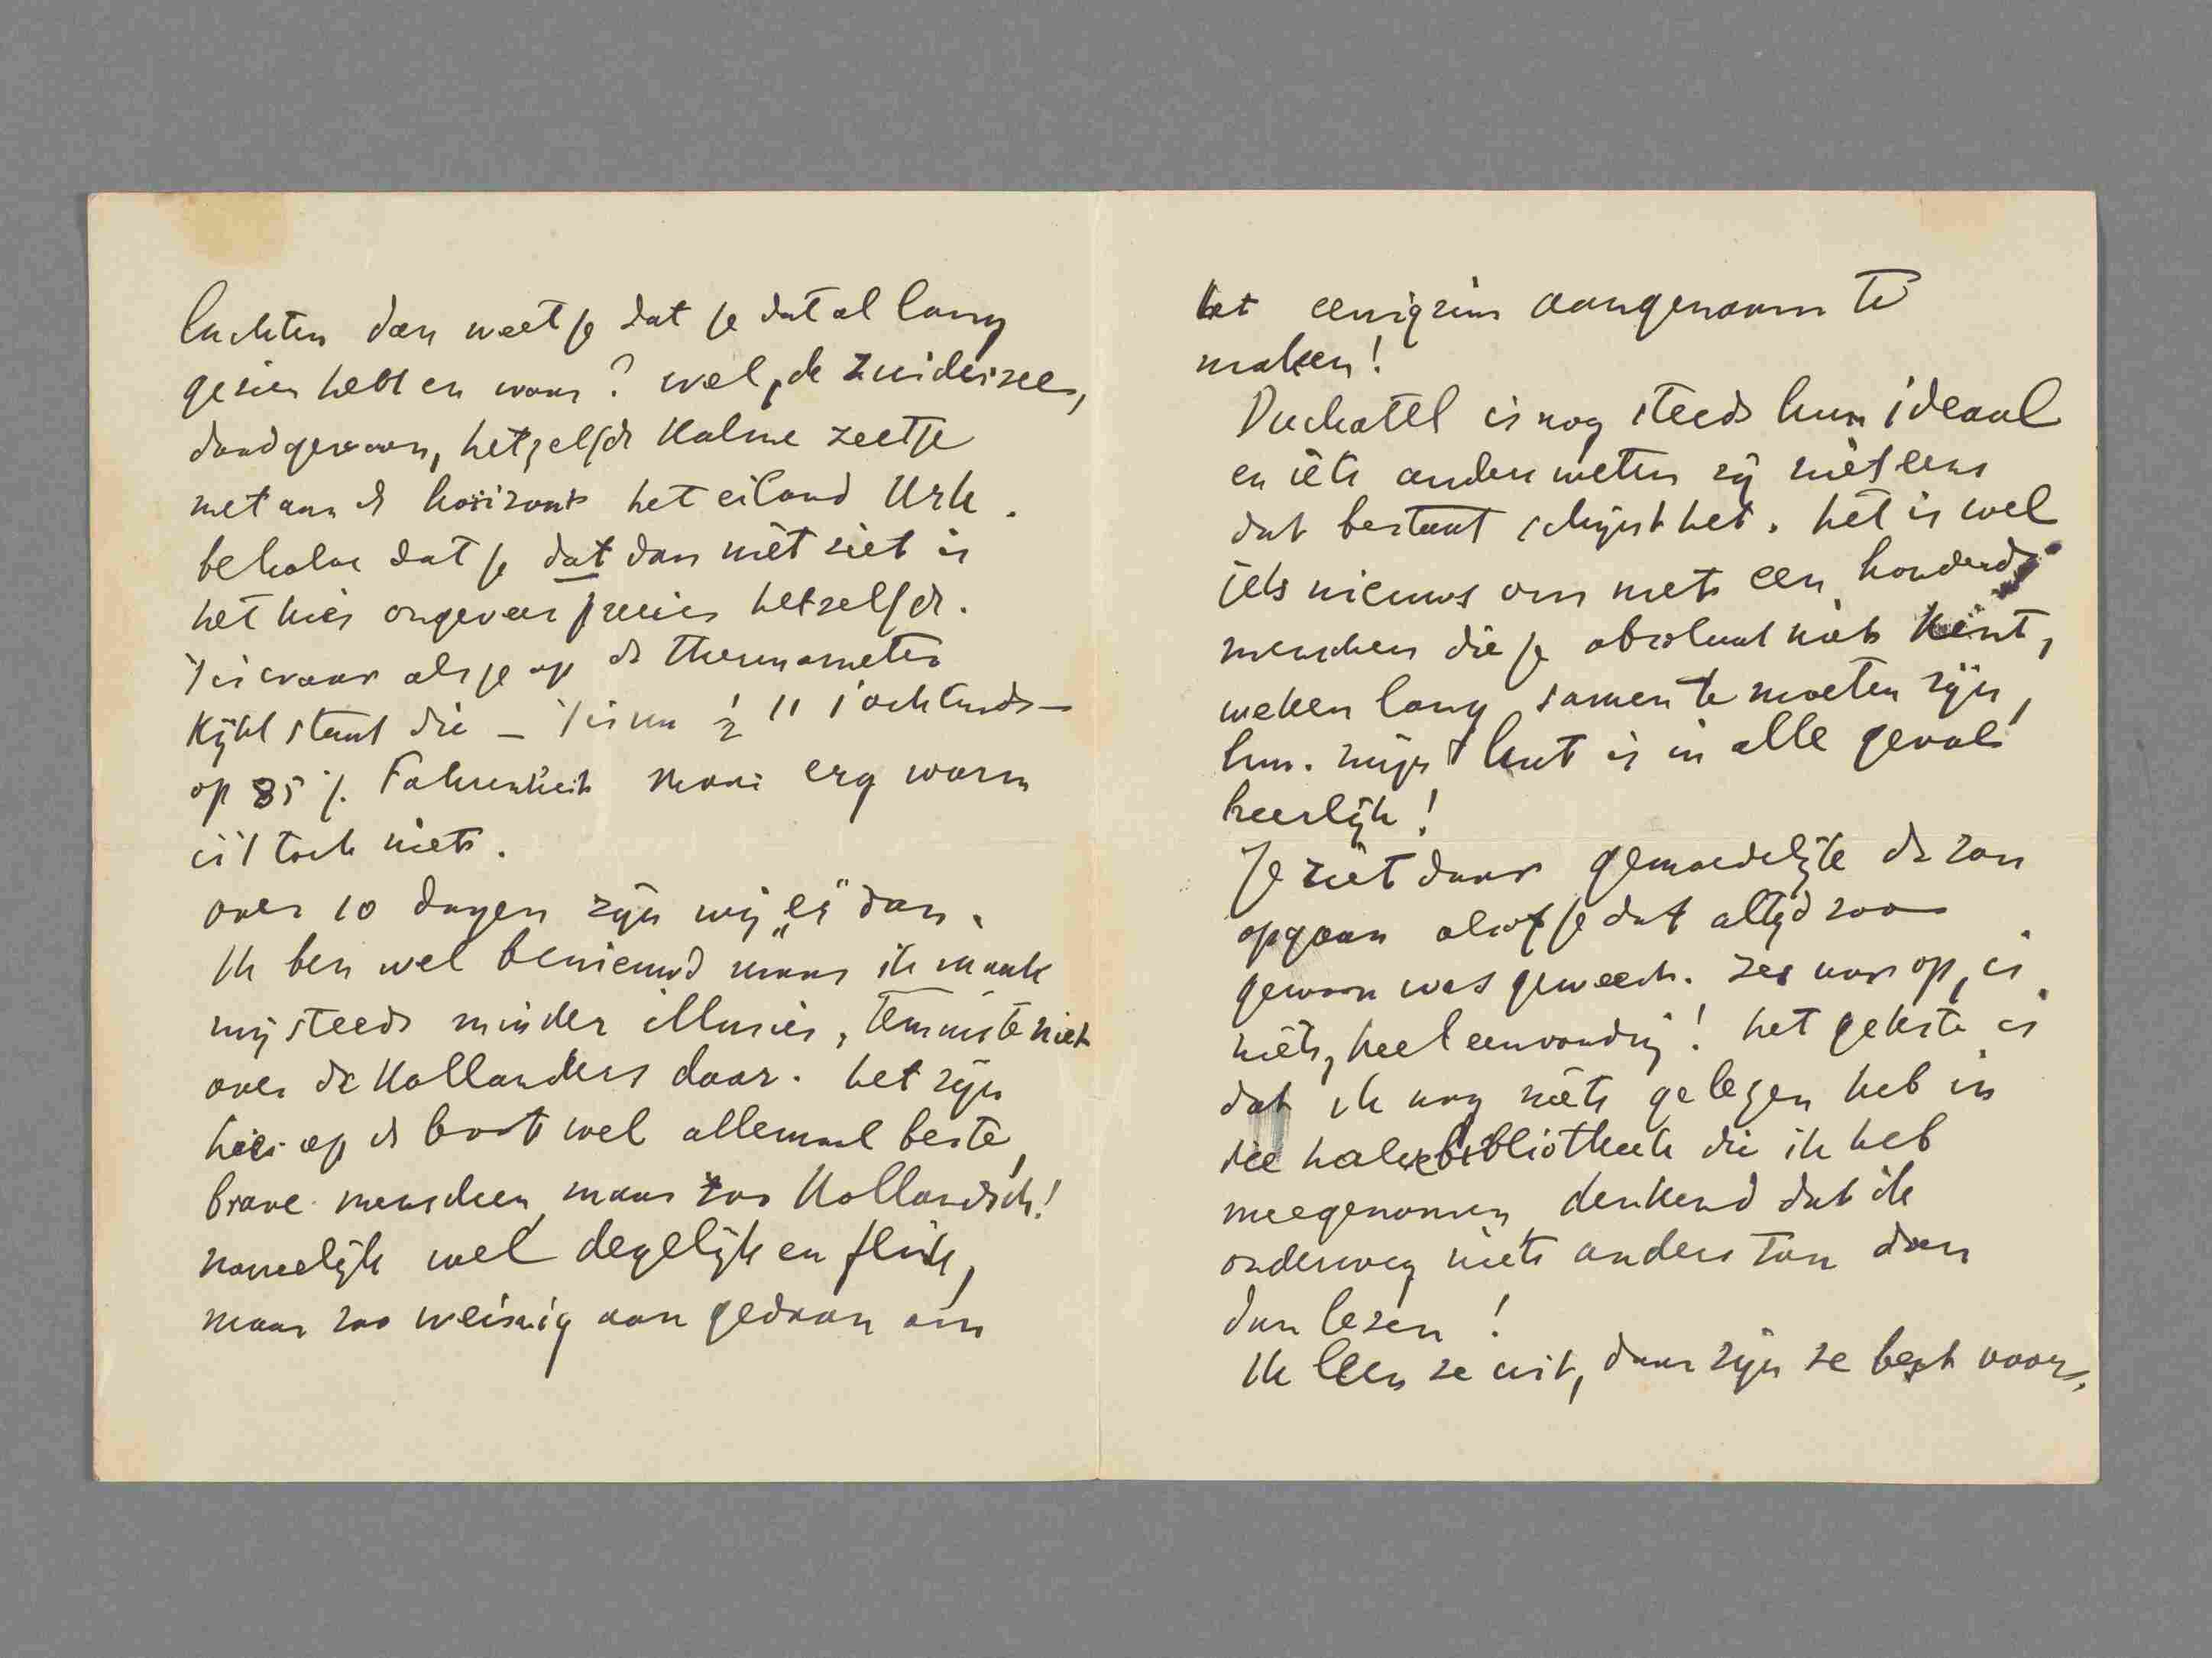 luchten dan weet je dat je dat al lang
gezien hebt en waar? wel, de Zuiderzee,
doodgewoon, hetzelfde Kalme zeetje
met aan de horizont het eiland Urk.
behalve dat je dat dan niet ziet is
het hier ongeveer precies hetzelfde.
't is waar als je op de Thermometer
Kijkt staat die – 't is nu ½ 11 's ochtends –
op 85 %. Fahrenheit maar erg warm
is 't toch niets.
over 10 dagen zijn wij „er" dan.
Ik ben wel benieuwd maar ik maak
mij steeds minder illusies, tenminste niet
over de Hollanders daar. het zijn
hier op de boot wel allemaal beste,
brave menschen maar zoo Hollandsch!
namelijk wel degelijk en flink,
maar zoo weinig aan gedaan om
het eenigzins aangenaam te
maken!
Duchatel is nog steeds hun ideaal
en iets anders weten zij niet eens
dat bestaat schijnt het. het is wel
iets nieuws om met een honderd
menschen die je absoluut niet Kent,
weken lang samen te moeten zijn,
hm. mijn hut is in alle geval
heerlijk!
Je ziet daar gemoedelijk de zon
opgaan alsof je dat altijd zoo
gewoon was geweest. zes uur op, is
niets, heel eenvoudig! het gekste is
dat ik nog niets gelezen heb in
die halve bibliotheek die ik heb
meegenomen denkend dat ik
onderweg niets anders zou doen
dan lezen!
Ik leen ze uit, daar zijn ze best voor.